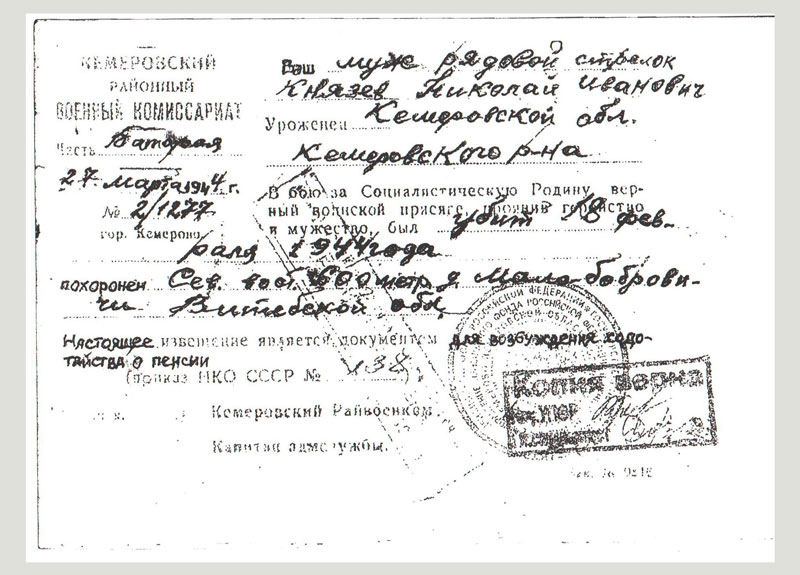 КЕМЕРОВСКИЙ
РАЙОННЫЙ
ВОЕННЫЙ КОМИССАРИАТ
Часть Вторая
27 марта 1944 г.
№ 2/1277
гор. Кемерово
Ваш муж рядовой стрелок
Князев Николай Иванович
Уроженец Кемеровской обл.
Кемеровского р-на
В бою за Социалистическую Родину, вер-
ный воинской присяге, проявив геройство
и мужество, был убит 18 фев-
раля 1944 года
похоронен Сев. вост. 600 метр д Мало-боброви-
чи Витебской обл.
Настоящее извещение является документом для возбуждения ходо-
тайства о пенсии
(приказ НКО СССР № 138)
Кемеровский Райвоенком
Капитан адмслужбы.
РОССИЙСКОЙ ФЕДЕРАЦИИ
Копия верна